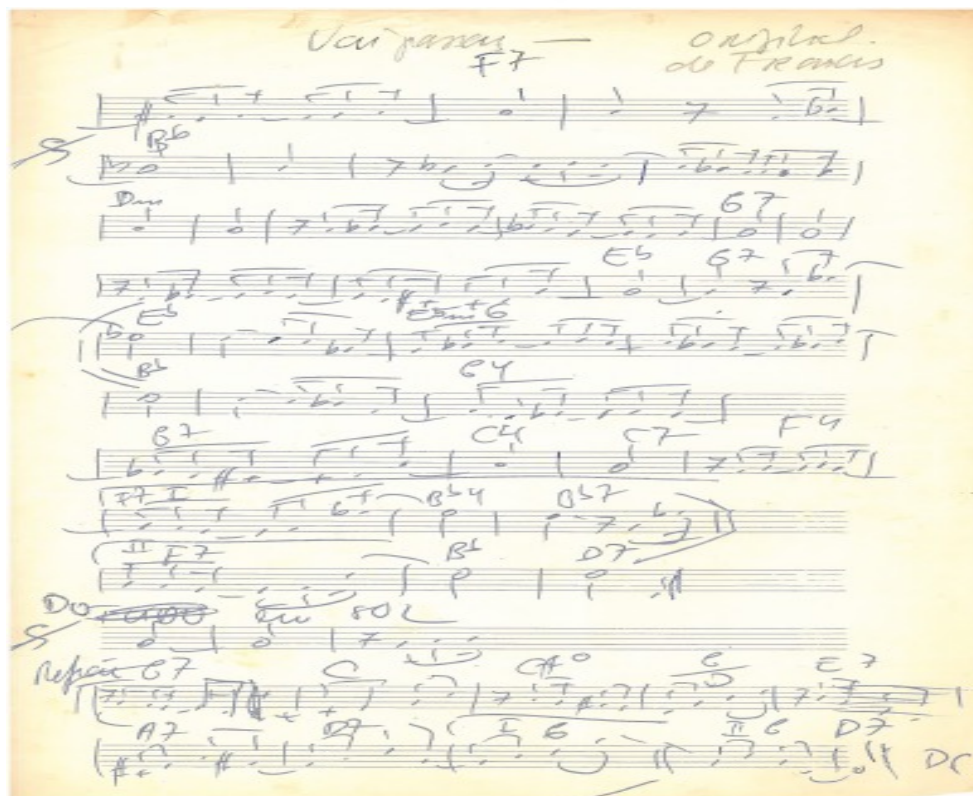 Vai passar — original
F7 de Francis
Bb
Dm G7
Eb G7
Eb Ebm6
Bb G4
G7 C4 C7 F4
F7 I Bb4 Bb7
II F7 Bb D7
Do em SOL
Refrão G7 C C#º G E7
A7 D7 I G II G D7 DC